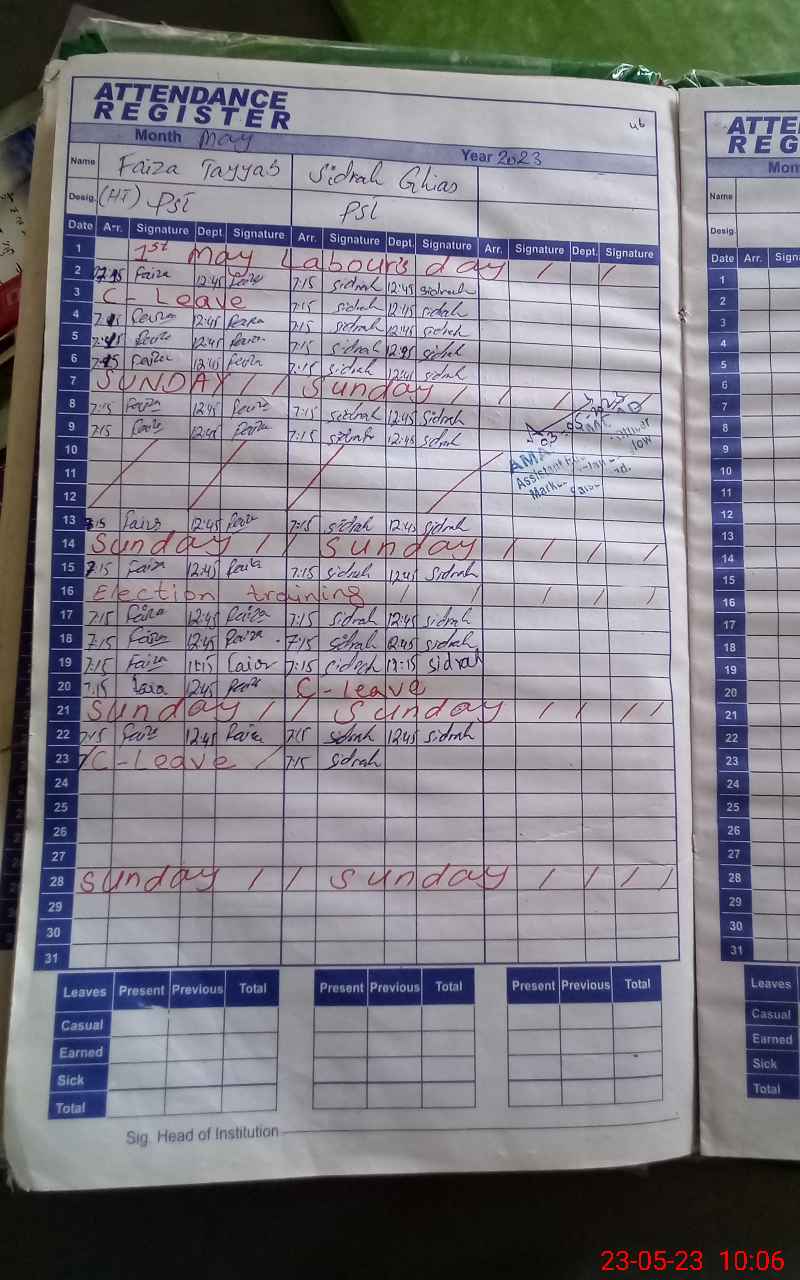 ATTENDANCE
REGISTER
46
Month May Year 2023
Name Faiza Tayyab Sidrah Ghias
Desig. (HT) PST PST
Date Arr. Signature Dept. Signature Arr. Signature Dept. Signature Arr. Signature Dept. Signature
1 1st May Labour's day / /
2 Faiza 12:45 Faiza 7:15 sidrah 12:45 sidrah
3 C- Leave 7:15 sidrah 12:45 sidrah
4 Faiza 12:45 Faiza 7:15 sidrah 12:45 sidrah
5 Faiza 12:45 Faiza 7:15 sidrah 12:45 sidrah
6 Faiza 12:45 Faiza 7:15 sidrah 12:45 sidrah
7 SUNDAY / / Sunday / / / /
8 7:15 Faiza 12:45 Faiza 7:15 sidrah 12:45 sidrah
9 7:15 Faiza 12:45 Faiza 7:15 sidrah 12:45 sidrah
10
11
12
Assistant
13 Faiza 12:45 Faiza 7:15 sidrah 12:45 sidrah
14 Sunday / / Sunday / / / /
15 7:15 Faiza 12:45 Faiza 7:15 sidrah 12:45 Sidrah
16 Election training / / / /
17 7:15 Faiza 12:45 Faiza 7:15 sidrah 12:45 sidrah
18 7:15 Faiza 12:45 Faiza 7:15 sidrah 12:45 sidrah
19 7:15 Faiza 11:15 Faiza 7:15 sidrah 11:15 sidrah
20 7:15 Faiza 12:45 Faiza C-leave
21 Sunday / / Sunday / / / /
22 7:15 Faiza 12:45 Faiza 7:15 sidrah 12:45 sidrah
23 C-Leave / 7:15 sidrah
24
25
26
27
28 Sunday / / Sunday / / / /
29
30
31
Leaves Present Previous Total Present Previous Total Present Previous Total
Casual
Earned
Sick
Total
Sig. Head of Institution
REG
Name
Desig.
Date Arr.
1
2
3
4
5
6
7
8
9
10
11
12
13
14
15
16
17
18
19
20
21
22
23
24
25
26
27
28
29
30
31
Leaves
Casual
Earned
Sick
Total
23-05-23 10:06